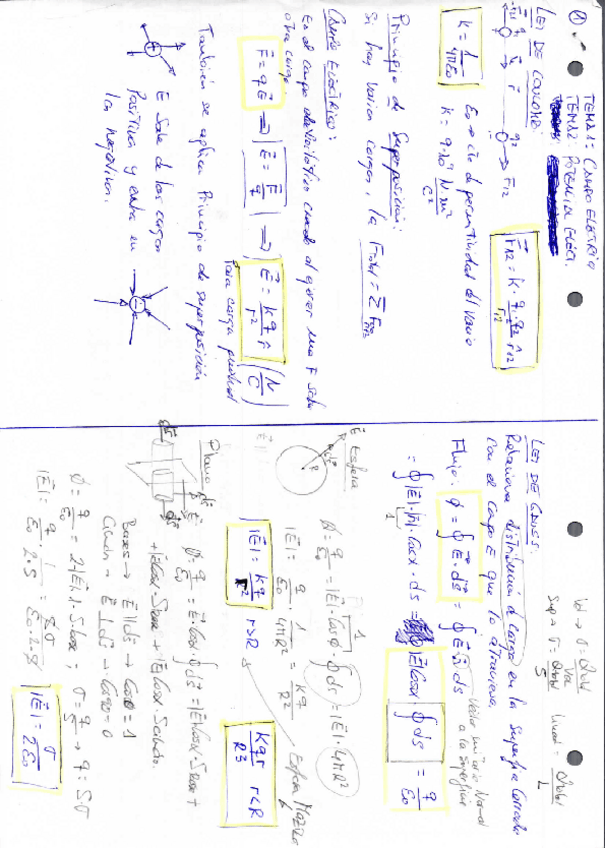 1
TEMA 1: CAMPO ELÉCTRICO
TEMA 2: POTENCIAL ELÉCT.
LEY DE COULOMB:
F12 = k · q1·q2 / r12² r̂12
K = 1/4πε0
ε0 → cte d permitividad del vacío
K = 9·10⁹ N·m²/C²
Principio de Superposición:
Si hay varias cargas, la Ftotal = Σ F
CAMPO ELÉCTRICO:
Es el campo electrostático creado al ejercer una F sobre
otra carga.
F = qE → E = F/q → E = kq/r² r̂ (N/C)
para carga puntual
También se aplica Principio de superposición
E sale de las cargas
Positivas y entra en
las negativas.
LEY DE GAUSS:
Relaciona distribución d carga en la superficie cerrada
con el campo E que lo atraviesa.
Flujo: φ = ∮ E·ds = ∮ E·n̂ ds
vector unitario Normal
a la superficie
= ∮ |E|·|n|·Cosα·ds = |E| Cosα ∮ ds = q/ε0
Esfera
φ = q/ε0 = |E|·Cosφ ∮ ds = |E|·4πR²
|E| = q/ε0 · 1/4πR² = kq/R²
Esfera MACIZA
|E| = kq/R² r>R
kqr/R³ r<R
Plano
φ = q/ε0 = E·Cosα ∮ ds = |E|Cosα·Sbase +
+|E|Cosα·Sbase + |E|Cosα·Scilindro.
Bases → E ∥ ds → Cos0 = 1
Cilindro → E ⊥ ds → Cos90 = 0
φ = q/ε0 = 2·|E|·1·Sbase ; σ = q/S → q = S·σ
|E| = q/ε0 · 1/2·S = S·σ/ε0·2·S
|E| = σ/2ε0